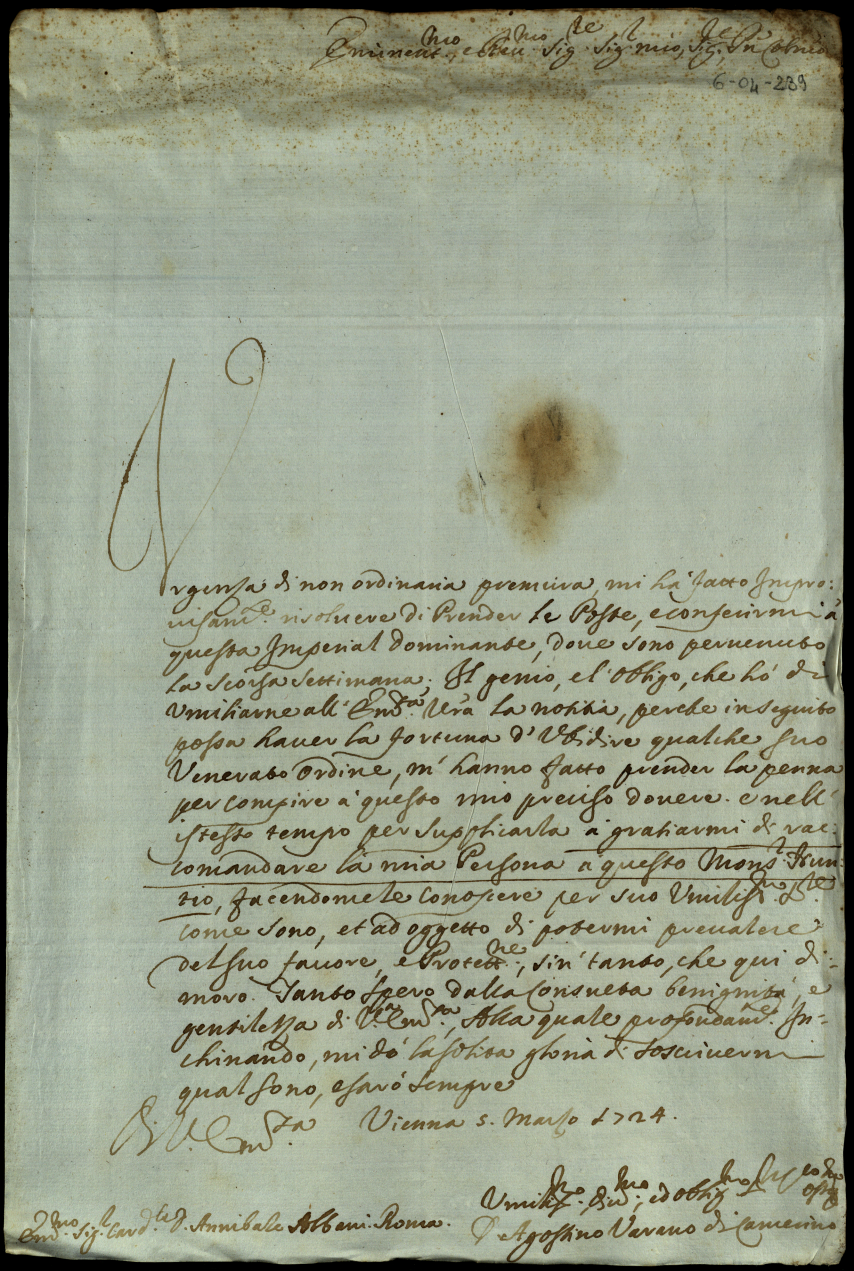 Eminent.mo, e Reu.mo Sig.re Sig.r mio, Sig.re, Pn Colmo
6-04-239
Vrgenza di non ordinaria premura, mi hà fatto Impro:
uisam.e risoluere di Prender le Poste, e conferirmi à
questa Imperial Dominante, doue sono peruenuto
la scorsa settimana. Il genio, e l'obligo, che hò di
Vmiliarne all'Em.za Vra la notitia, perche in seguito
possa hauer la fortuna d'Vbidire qualche suo
Venerato ordine, m'hanno fatto prender la penna
per compire à questo mio preciso douere. e nell'
istesso tempo per supplicarla à gratiarmi di rac:
comandare la mia Persona à questo Mons.r Nun-
tio, facendomele conoscere per suo Vmiliss.mo S.re
come sono, et ad oggetto di potermi preualere
del suo fauore, e Protett.ne, sin'tanto, che qui di:
moro. Tanto spero dalla Consueta benignità, e
gentilezza di V.a Em.za, Alla quale profondam.e In-
chinando, mi dò la solita gloria di soscriuermi
qual sono, e sarò sempre
Di V. Em.za Vienna 5. Marzo 1724.
Vmiliss.mo, diu.mo, ed oblig.mo
Em.mo Sig.r Card.le D. Annibale Albani Roma. D. Agostino Varano di Camerino